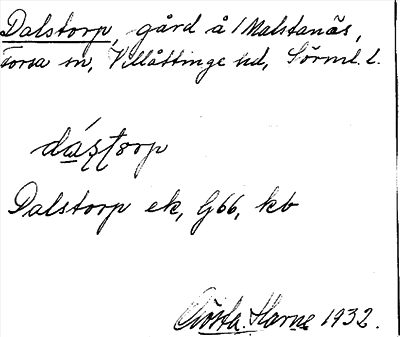 Dalstorp, gård å 1 Malstanäs,
Forsa sn, Villåttinge hd, Sörml. l.
dáștorp
Dalstorp ek, G66, kb
Gösta Harne 1932.